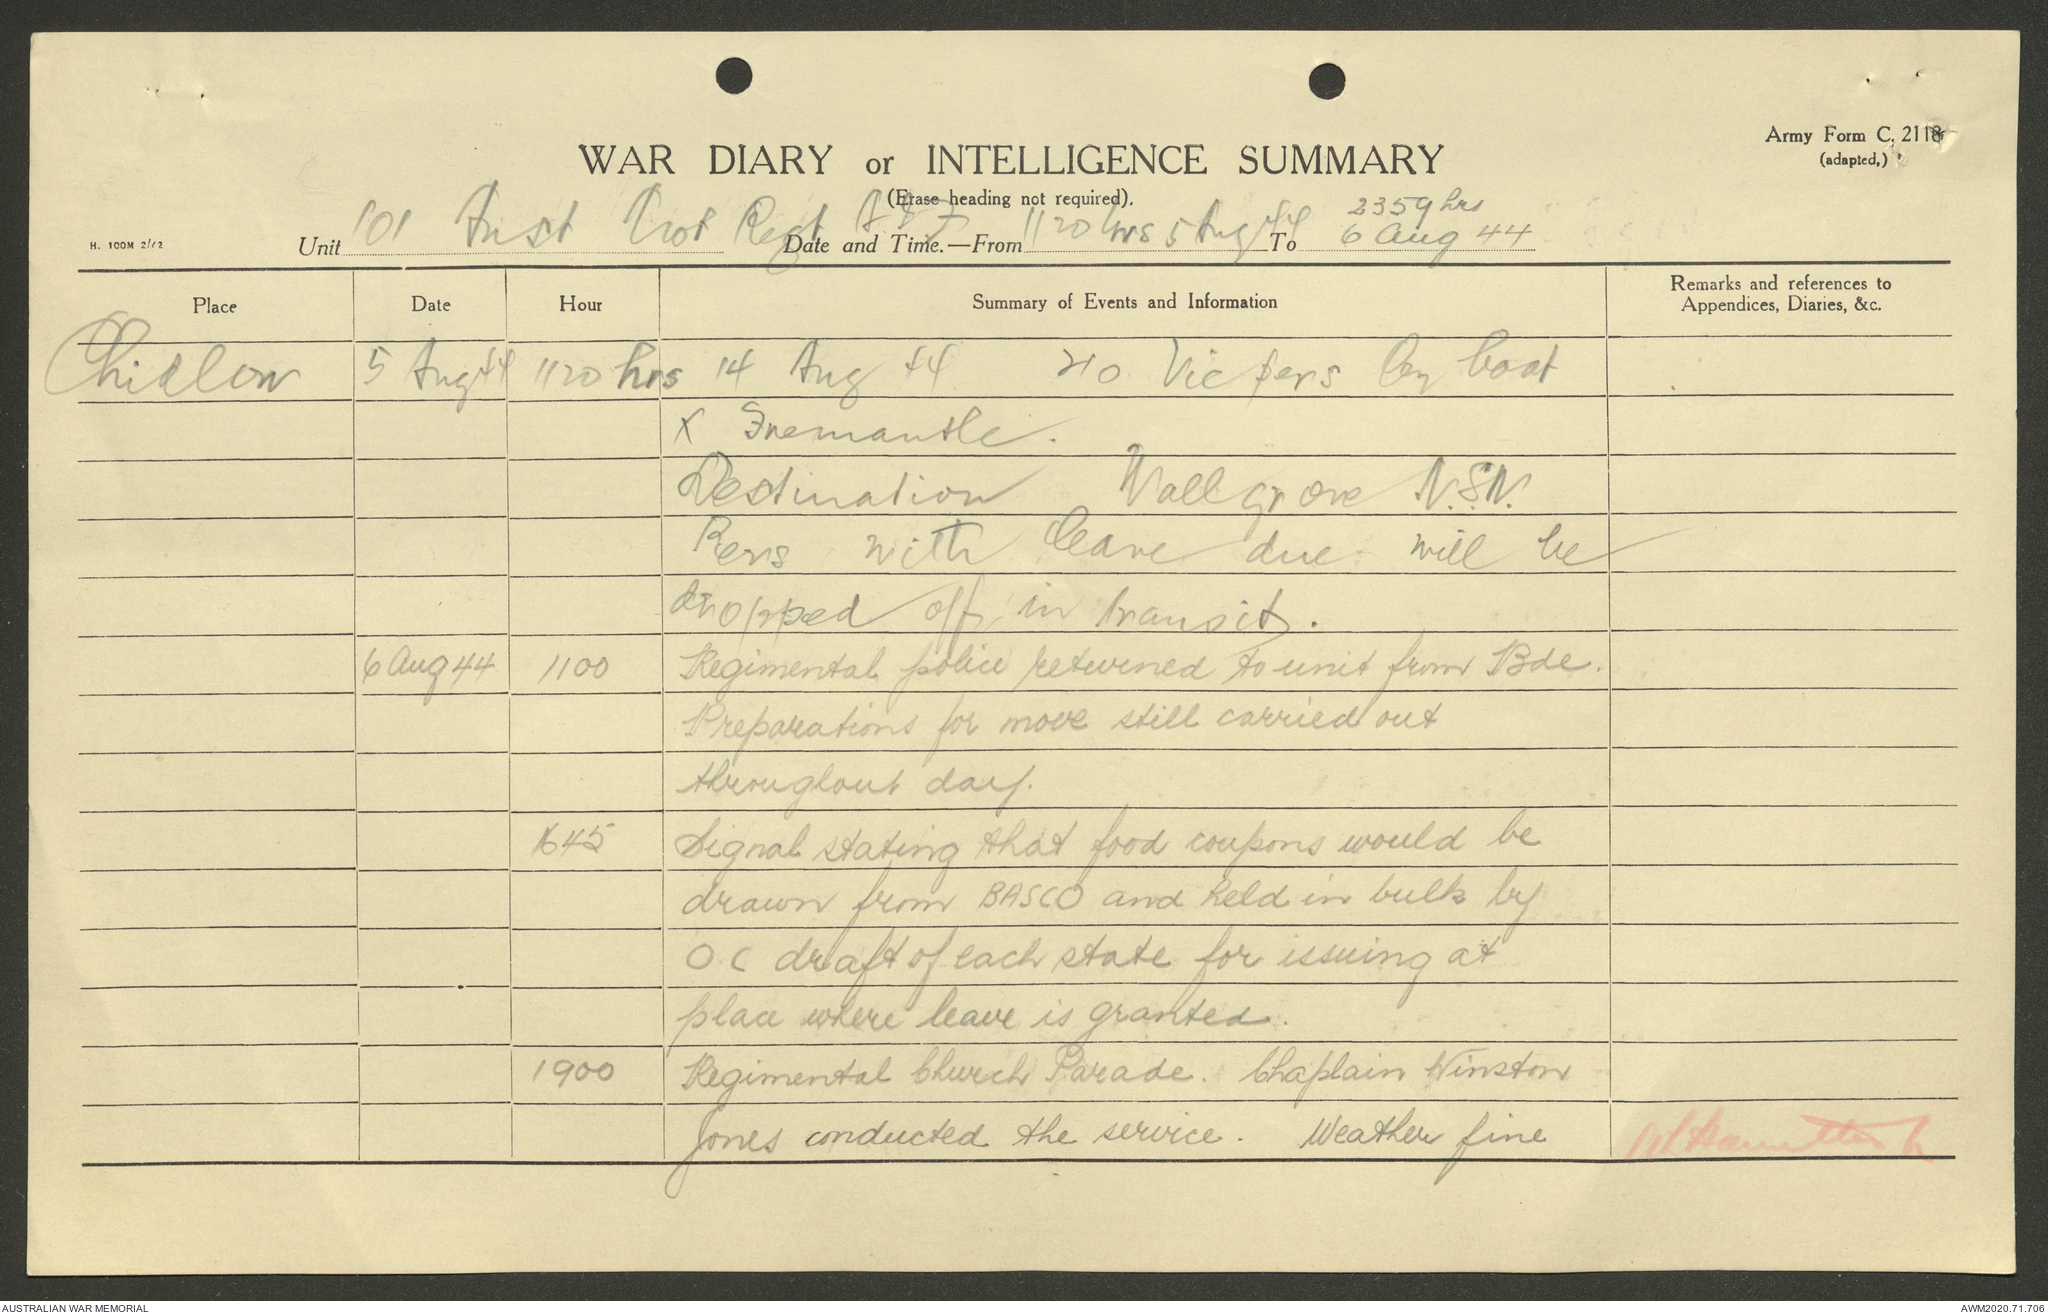 Army Form C. 2118
(adapted.)
WAR DIARY or INTELLIGENCE SUMMARY
(Erase heading not required).
H. 100M 2/42
Unit 101 Aust Regt AIF Date and Time.—From 1120 hrs 5 Aug 44 To 2359 hrs 6 Aug 44
Place Date Hour Summary of Events and Information Remarks and references to Appendices, Diaries, &c.
Chidlow 5 Aug 44 1120 hrs 14 Aug 44 210 Vic pers by boat
X Fremantle.
Destination Wallgrove N.S.W.
Pers with leave due will be
dropped off in transit.
6 Aug 44 1100 Regimental police returned to unit from Bde.
Preparations for move still carried out
throughout day.
1645 Signal stating that food coupons would be
drawn from BASCO and held in bulk by
O.C draft of each state for issuing at
place where leave is granted.
1900 Regimental Church Parade. Chaplain Winston
Jones conducted the service. Weather fine
AUSTRALIAN WAR MEMORIAL
AWM2020.71.706